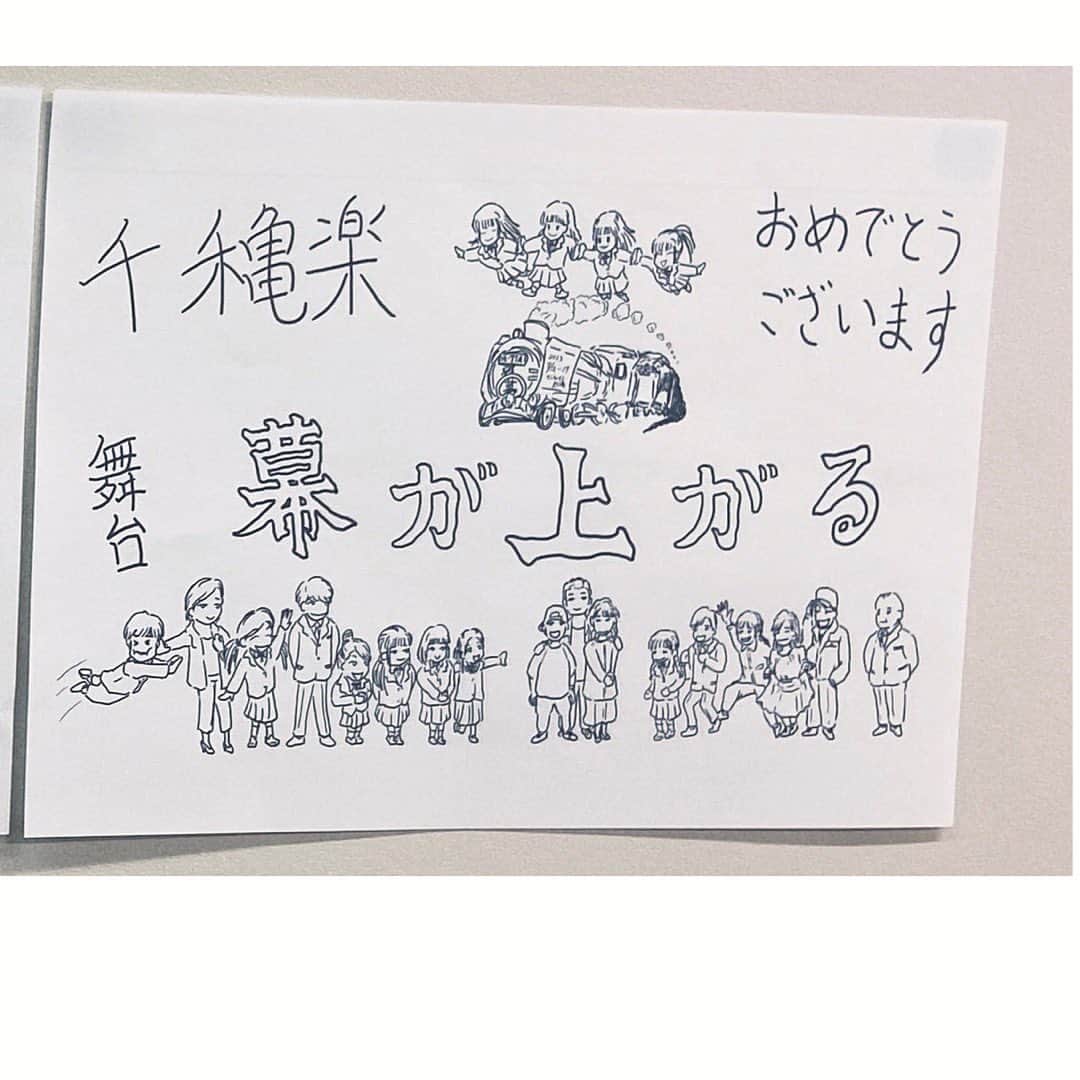 千穐楽
おめでとう
ございます
舞台
幕が上がる